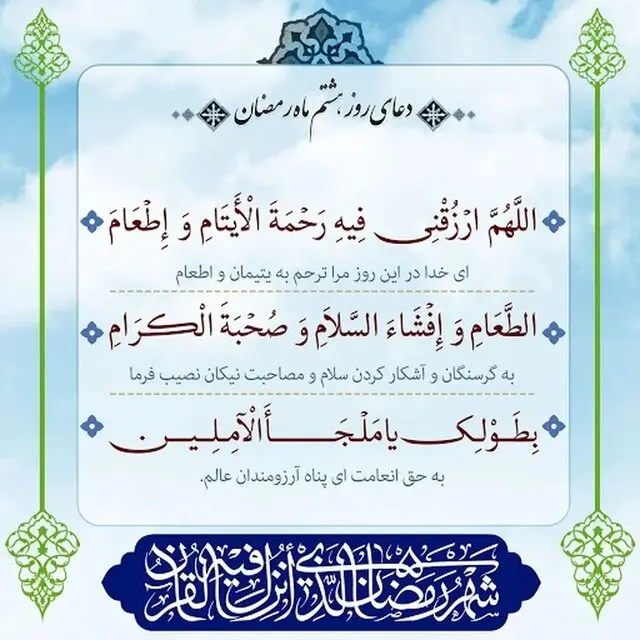 دعای روز هشتم ماه رمضان
اللَّهُمَّ ارْزُقْنِی فِیهِ رَحْمَةَ الْأَیتَامِ وَ إِطْعَامَ
ای خدا در این روز مرا ترحم به یتیمان و اطعام
الطَّعَامِ وَ إِفْشَاءَ السَّلاَمِ وَ صُحْبَةَ الْکرَامِ
به گرسنگان و آشکار کردن سلام و مصاحبت نیکان نصیب فرما
بِطَوْلِک یا مَلْجَأَ الْآمِلِین
به حق انعامت ای پناه آرزومندان عالم.
شَهْرُ رَمَضَانَ الَّذِي أُنْزِلَ فِيهِ الْقُرْآنُ